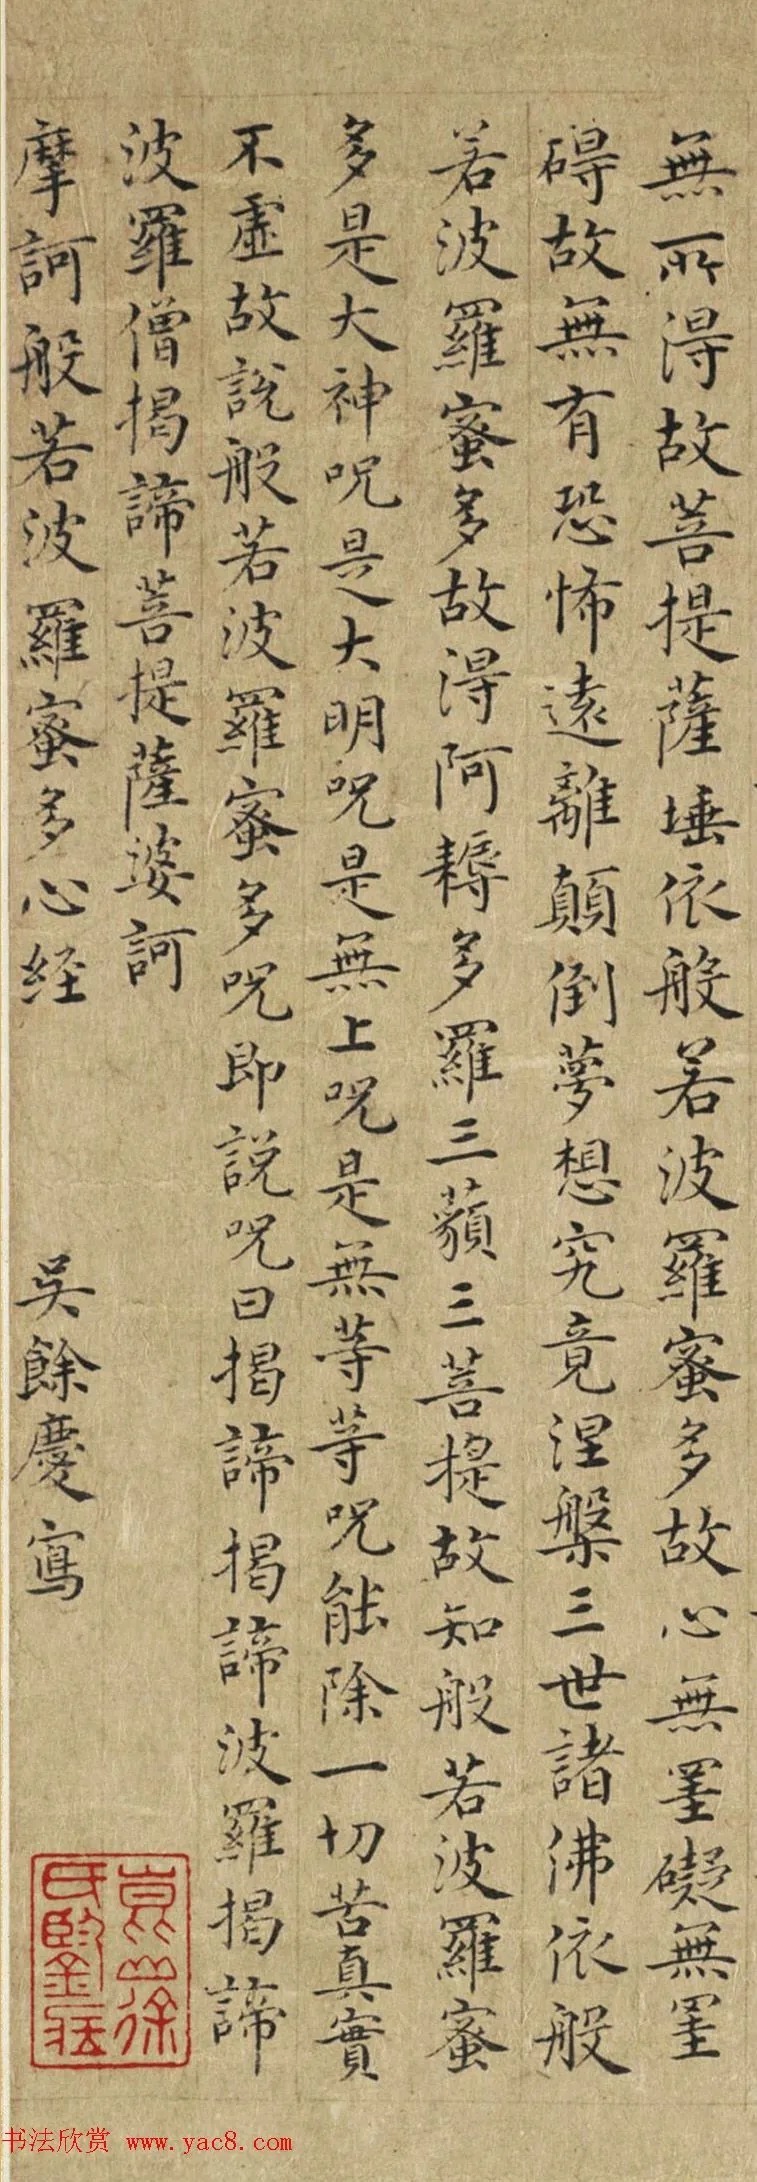 無所得故菩提薩埵依般若波羅蜜多故心無罣礙無罣
碍故無有恐怖遠離顛倒夢想究竟涅槃三世諸佛依般
若波羅蜜多故得阿耨多羅三藐三菩提故知般若波羅蜜
多是大神呪是大明呪是無上呪是無等等呪能除一切苦真實
不虛故說般若波羅蜜多呪即說呪曰揭諦揭諦波羅揭諦
波羅僧揭諦菩提薩婆訶
摩訶般若波羅蜜多心経
吳餘慶寫
书法欣赏 www.yac8.com